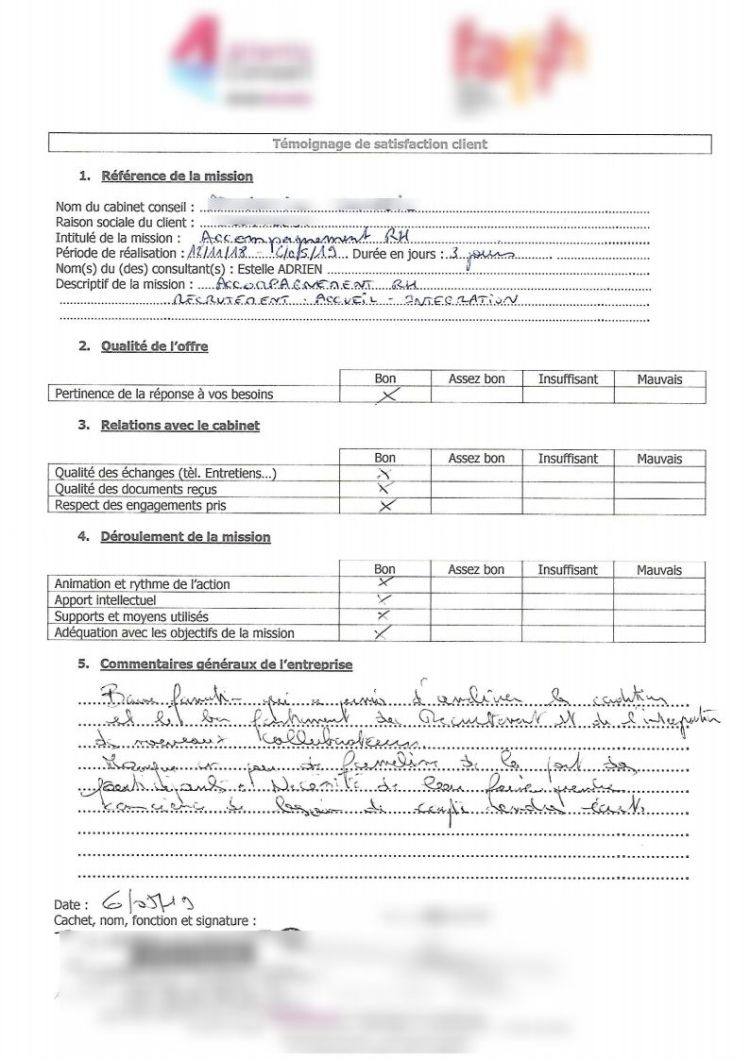 Témoignage de satisfaction client
1. Référence de la mission
Nom du cabinet conseil :
Raison sociale du client :
Intitulé de la mission : Accompagnement RH
Période de réalisation : 12/11/18 - 6/05/19 Durée en jours : 3 jours
Nom(s) du (des) consultant(s) : Estelle ADRIEN
Descriptif de la mission : ACCOMPAGNEMENT RH
RECRUTEMENT : ACCUEIL - INTEGRATION
2. Qualité de l'offre
Bon Assez bon Insuffisant Mauvais
Pertinence de la réponse à vos besoins X
3. Relations avec le cabinet
Bon Assez bon Insuffisant Mauvais
Qualité des échanges (tèl. Entretiens...) X
Qualité des documents reçus X
Respect des engagements pris X
4. Déroulement de la mission
Bon Assez bon Insuffisant Mauvais
Animation et rythme de l'action X
Apport intellectuel X
Supports et moyens utilisés X
Adéquation avec les objectifs de la mission X
5. Commentaires généraux de l'entreprise
qui a permis d'améliorer les conditions
et le bon du Recrutement et de l'intégration
de nouveaux Collaborateurs
Manque un peu de de la part des
participants Nécessité de leur faire prendre
conscience de
Date : 6/05/19
Cachet, nom, fonction et signature :